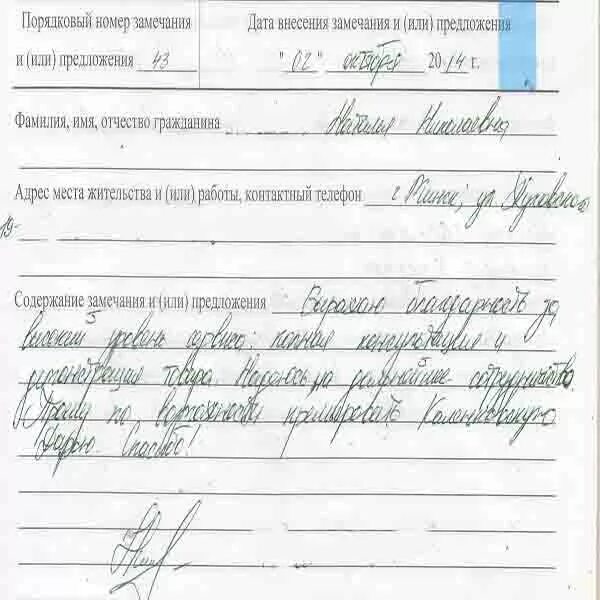 Порядковый номер замечания
и (или) предложения 43
Дата внесения замечания и (или) предложения
"02" октября 2014 г.
Фамилия, имя, отчество гражданина Наталья Николаевна
Адрес места жительства и (или) работы, контактный телефон г. Минск, ул.
19-
Содержание замечания и (или) предложения Выражаю благодарность за
высокий уровень сервиса: полная консультация и
демонстрация товара. Надеюсь на дальнейшее сотрудничество.
Прошу по возможности премировать
Дарью. Спасибо!